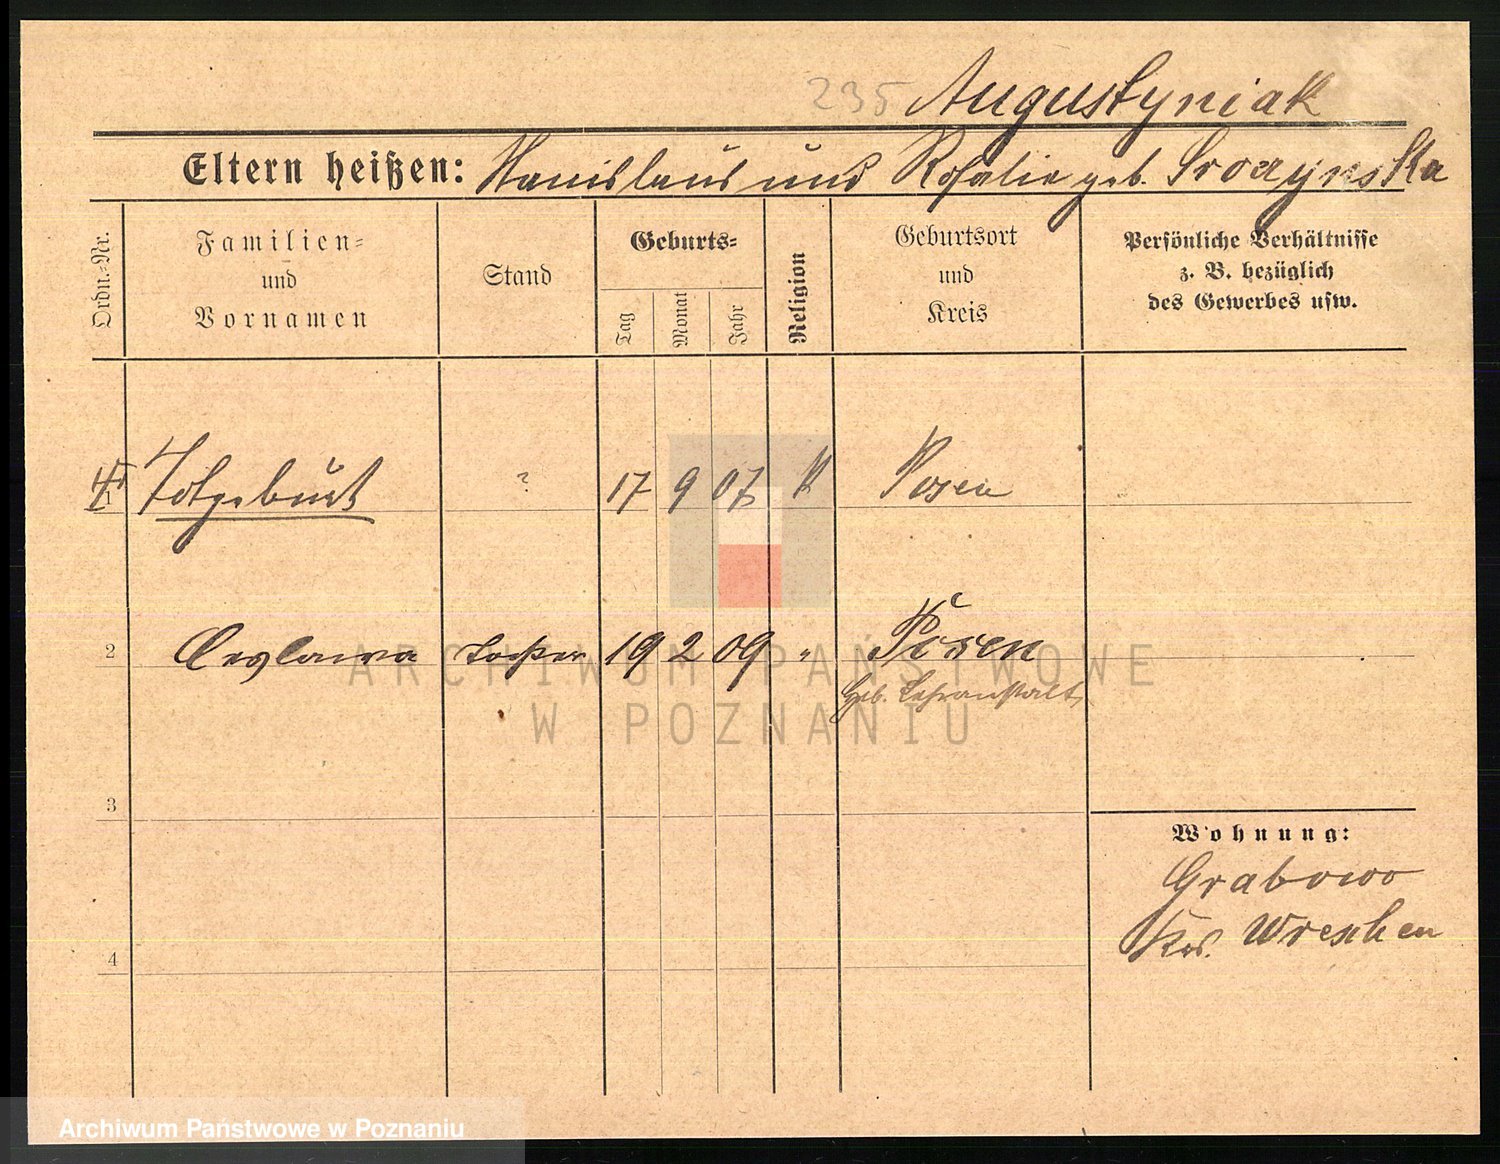 235 Augustyniak
Eltern heißen: Stanislaus und Rosalie geb.
Ordn.-Nr.
Familien-
und
Vornamen
Stand
Geburts-
Tag
Monat
Jahr
Religion
Geburtsort
und
Kreis
Persönliche Verhältnisse
z. B. bezüglich
des Gewerbes usw.
1 Totgeburt ? 17 9 07 K Posen
2 Ceslawa Tochter 19 2 09 " Posen
Geb. Lehranstalt
3
Wohnung:
Grabowo
Krs. Wreschen
4
ARCHIWUM PAŃSTWOWE
W POZNANIU
Archiwum Państwowe w Poznaniu